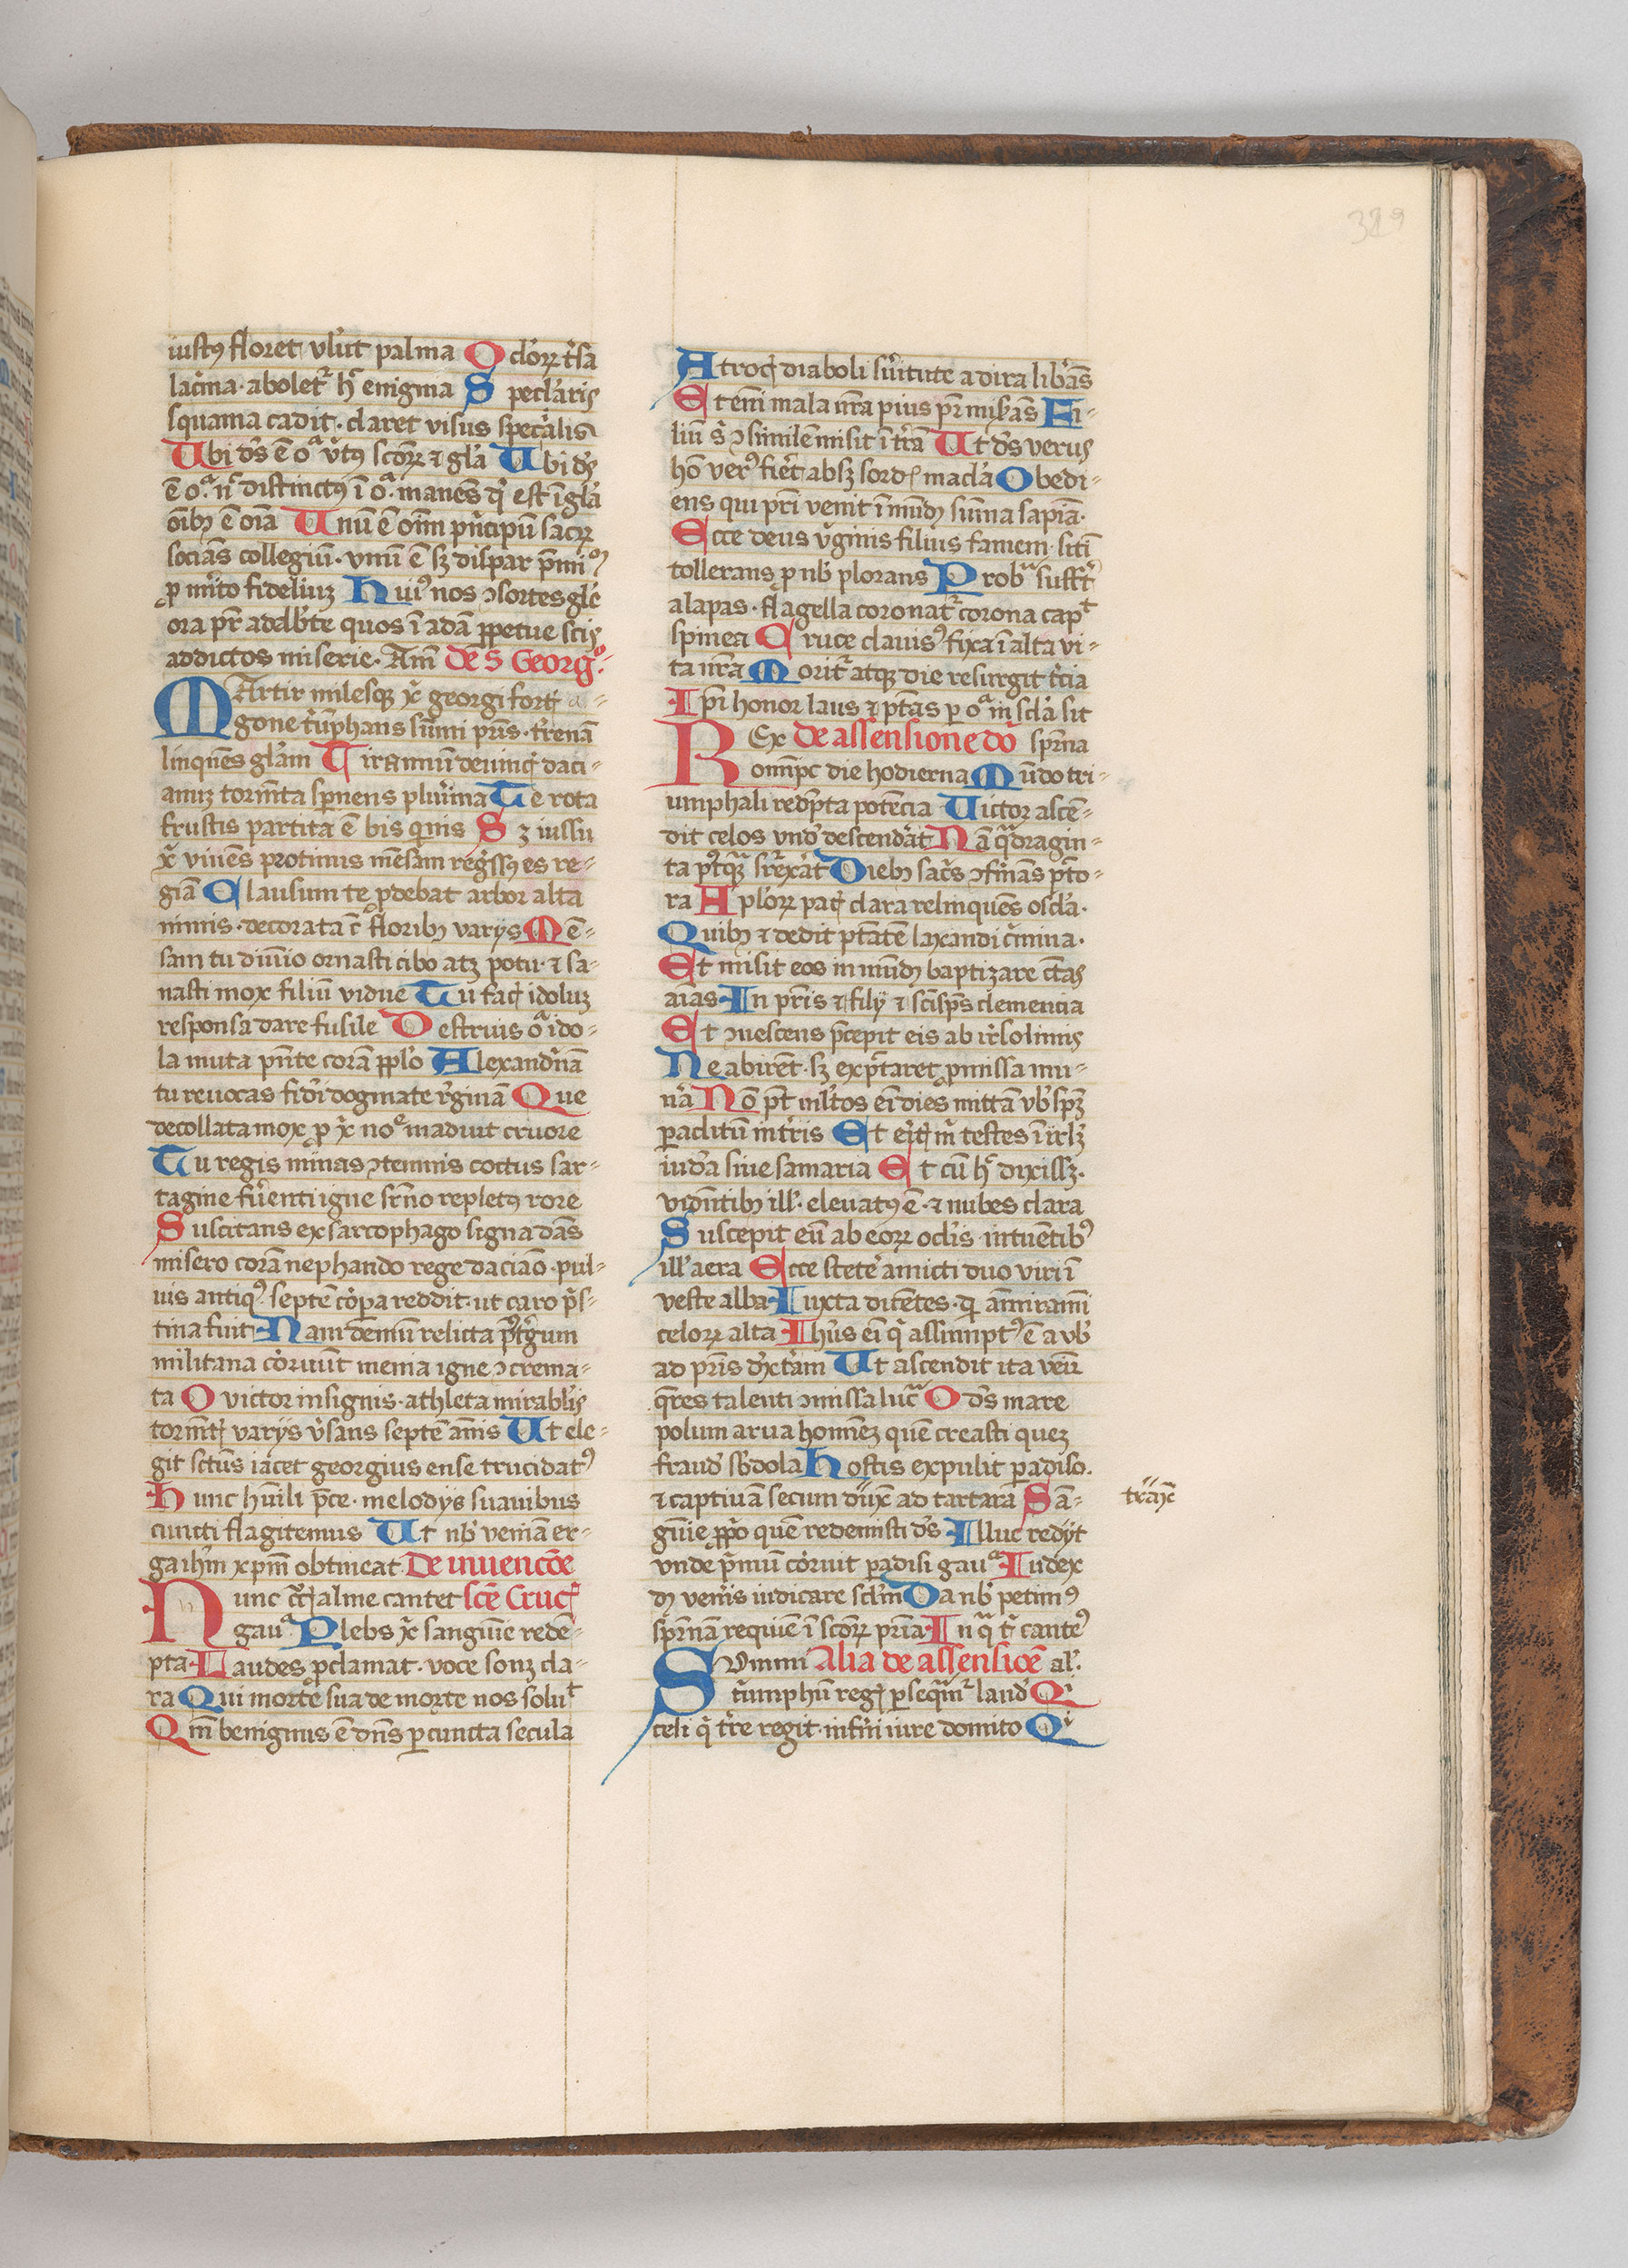 329
iustꝰ floret vl'ut palma Oclo̕ꝝ tʼsa
lac̓ma · abolet᷑ hͨ enigma Specl'aris
squama cadit · claret visus specʼalis
Ubi dʼs ē oᵃ v̓tꝰ scōꝝ ⁊ gl'a Ubi dʼs
ē oᵃ · nͥ distinctꝰ ī oᵃ · manēs qͥ est ī gl'a
oībꝫ ē oīa Unū ē oīm p̓ncipū sacꝝ
socians collegiū · vnū ē sꝫ dispar p̄miū
ꝓ mʼito fideliuꝫ Huiꝰ nos ↄsortes gl'e
ora pr̄ addb'te quos ī adā ꝑpetue scis
addictos miserie · Am̄ De S Georgᵒ ·
MArtir milesqꝫ xͥ georgi forti a-
gone tʼūphans sūmi pr̄is · tʼrenā
linquēs gl'am Tirannū deuincꝭ daci-
anuꝫ torm̄ta spnens plurima Te rota
frustis partita ē bis quis Sꝫ iussu
xͥ viuēs protinus mēsam reg̓ssꝰ es re-
giā Clausum te ꝓdebat arbor alta
nimis · decorata c̄ floribꝫ varijs Mē-
sam tu diuīo ornasti cibo atꝫ potu · ⁊ sa-
nasti mox filiū vidue Tu facꝭ idoluꝫ
responsa dare fusile Destruis oᵃ ido-
la muta pn̄te corā pplo Alexandʼnā
tu reuocas fidʼi dogmate rʼginā Que
decollata mox ꝓ xͥ noᵉ maduit cruore
Tu regis minas ↄtemnis coctus sar-
tagine fʼuenti igne srno repletꝰ rore
Suscitans ex sarcophago signa dās
misero corā nephando rege daciāo · pul-
uis antiqꝰ septē cōrpa reddit · ut caro pʼs-
tina fuit Nam demū relicta ptʼgʼum
militana cōruunt menia igne ↄcrema-
ta O victor insignis · athleta mirabl'is
tormētꝭ varijs vʼsans septē annis Ut ele-
git sctūs iacet georgius ense trucidatꝰ
Hunc huili p̄ce · melodijs suauibus
cuncti flagitemus Ut nb' veniā er-
ga ih'm xp̄m obtineat De inuencōe
Nunc crͣ alme cantet scē Crucꝭ
gauᵃ Plebs xͥ sanguīe redē-
pta · Laudes ꝓclamat · voce sonꝫ cla-
ra Qui morte sua de morte nos soluᵗ
Qm̄ benignus ē dn̄s ꝑ cuncta secula
Atrocꝭ diaboli sʼuitute a dira lib'ās
Etem̄ mala nr̄a pius pr̄ misʼans Fi-
liū sʼ ↄsimilē misit ī trʼa Ut dʼs verus
hō verꝰ fiet' absꝫ sordꝭ macl'a Obedi-
ens qui prī venit ī mūdꝫ sūma sapīa ·
Ecce deus vʼginis filius famem · sitī
tollerans ꝓ nb' plorans Probᵃ sufftʼ
alapas · flagella coronat᷑ corona capᵗ
spinea Cruce clauisꝰ fixa ī alta vi-
ta nr̄a Morit᷑ atqꝫ die resurgit tʼcia
Ipi honor laus ⁊ ptās ꝑ oᵃ in scl'a sit
REx De assensione dō spr̄na
omīpc die hodierna Mūdo tri-
umphali redēpta potēcia Uictor ascē-
dit celos vndʼ descendʼat Nā qᵃdragin-
ta pꝰtqᵃꝫ srʼexʼat Diebꝫ sacʼs ↄfʼmās pcʼto-
ra Apl'oꝝ pacꝭ clara relinquēs oscl'a ·
Quibꝫ ⁊ dedit ptatē laxandi cʼmina ·
Et misit eos in mūdꝫ baptizare cūtas
aīas · In pr̄is ⁊ filij ⁊ sc̄i sp̄s clemencia
Et ↄuescens p̄cepit eis ab irʼsolimis
Ne abirēt · sꝫ exptaret ꝓmissa mu-
nʼa Nō pꝰt ml'tos ei dies mittā vb' spꝫ
ꝑaclitū in trʼis Et erꝭtꝭ m̄ testes ī irlꝫ
iudʼa siue samaria Et cū hͨ dixissꝫ ·
vidn̄tibꝫ ill' · eleuatꝰ ē · ⁊ nubes clara
Suscepit eū ab eoꝝ ocl'is · intuētibꝰ
ill' aera Ecce stetʼe amicti duo viri ī
veste alba · Iuxta dicētes · qͥ am̄iramī
celoꝝ alta Ih'us ei qͥ assumptꝰ ē a vb'
ad pr̄is dʼxtʼam Ut ascendit ita veīt
qʼres talenti ↄmissa lucᵃ O dʼs mare
polum arua homīeꝫ quē creasti queꝫ
fraudʼ sb'dola Hostis expulit ꝑadiso ·
⁊ captiuā secum duxͭ ad tartara Sā-
guīe ꝓprͦ quē redemisti dʼs Illuc redijt
vnde pʼmū cōruit ꝑadisi gauᵃ Iudex
dꝫ venʼis iudicare scl'm Da nb' petimꝰ
spr̄nā requiē ī scōꝝ pr̄ia · In qᵃ tʼ cantꝰ
SUmmi Alia de assensiōe al' ·
tʼumphū regꝭ ꝑseqᵃmʼ laudʼ Qͥ
celi qͥ trʼe regit · infʼni iure domito Qͥ
trāxͭ